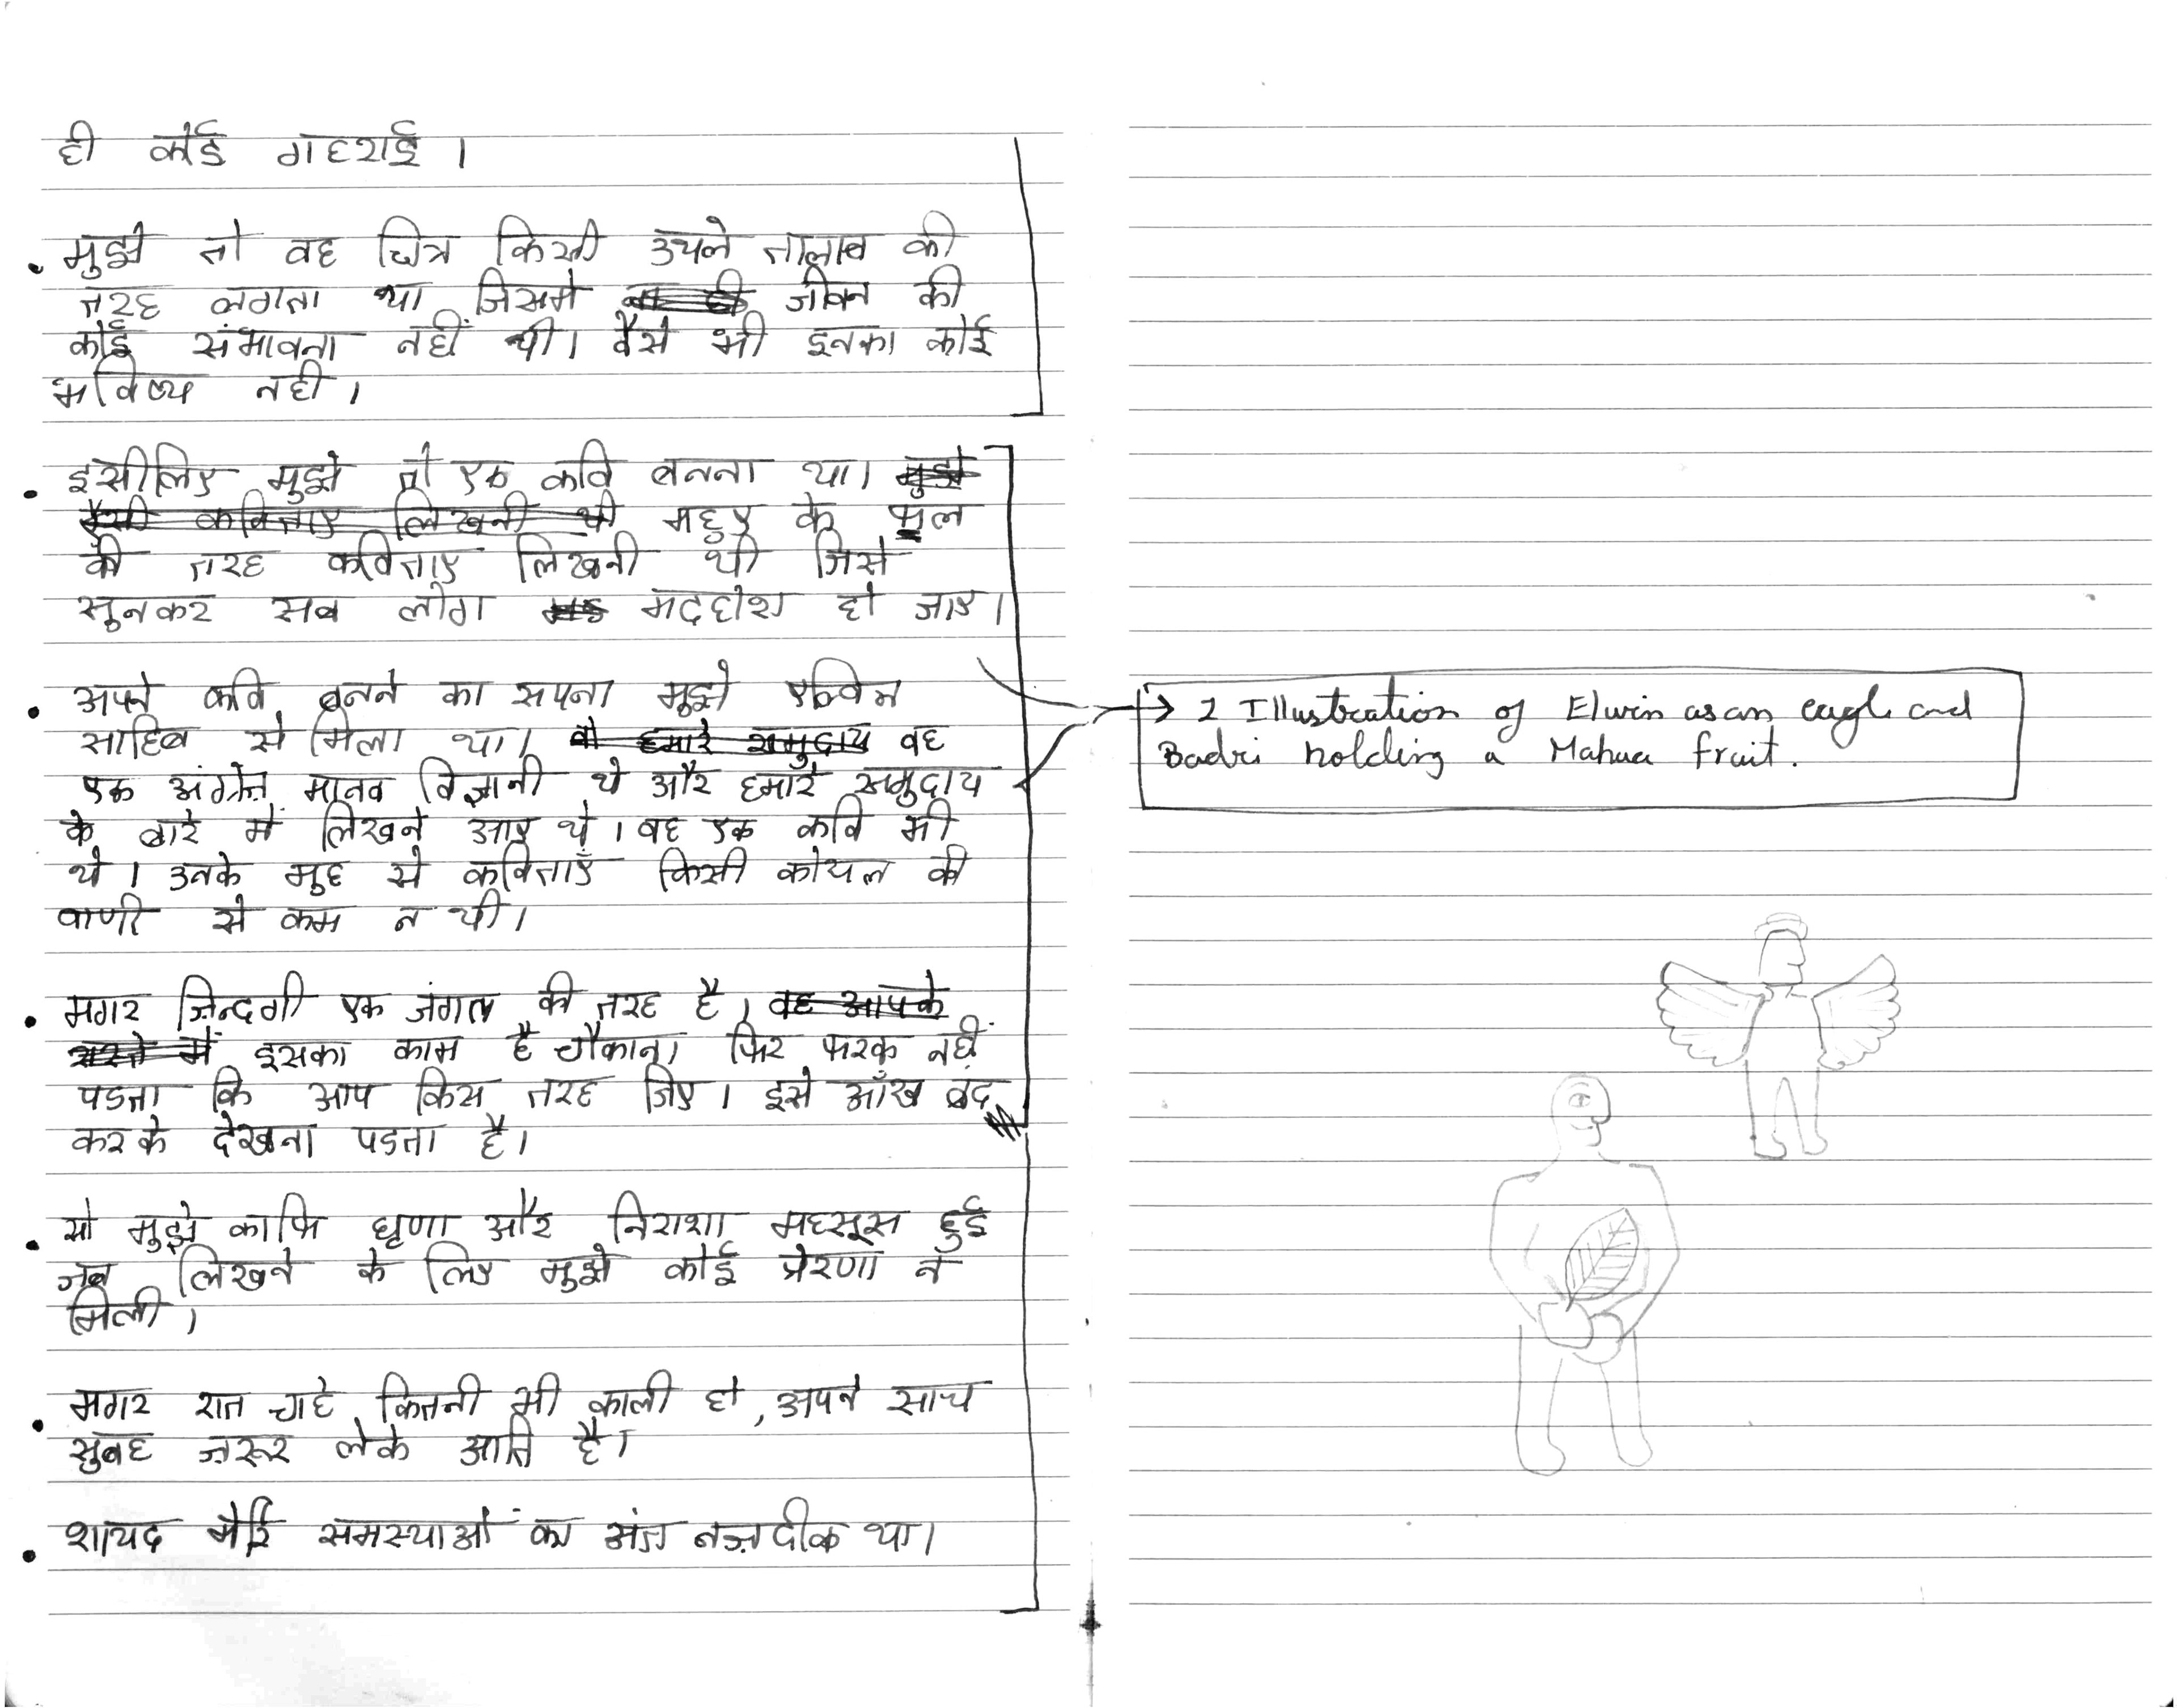 ही कोई गहराई।
मुझे तो वह चित्र किसी उथले तालाब की
तरह लगता था जिसमे जीवन की
कोई संभावना नहीं थी। वैसे भी इनका कोई
भविष्य नही।
इसीलिए मुझे तो एक कवि बनना था। मुझे
ऐसी कविताए लिखनी थी महुए के फूल
की तरह कविताए लिखनी थी जिसे
सुनकर सब लोग मदहोश हो जाए।
अपने कवि बनने का सपना मुझे एल्विन
साहिब से मिला था। वो हमारे समुदाय वह
एक अंग्रेज़ मानव विज्ञानी थे और हमारे समुदाय
के बारे में लिखने आए थे। वह एक कवि भी
थे। उनके मुह से कविताएँ किसी कोयल की
वाणी से कम न थी।
मगर ज़िन्दगी एक जंगल की तरह है। वह आपके
रास्ते में इसका काम है चौकाना। फिर फरक नहीं
पडता कि आप किस तरह जिए। इसे आँख बंद
करके देखना पडता है।
सो मुझे काफि घृणा और निराशा महसूस हुई
जब लिखने के लिए मुझे कोई प्रेरणा न
मिली।
मगर रात चाहे कितनी भी काली हो, अपने साथ
सुबह ज़रूर लेके आति है।
शायद मेरि समस्याओं का अंत नज़दीक था।
2 Illustration of Elwin as an eagle and
Badri holding a Mahua fruit.